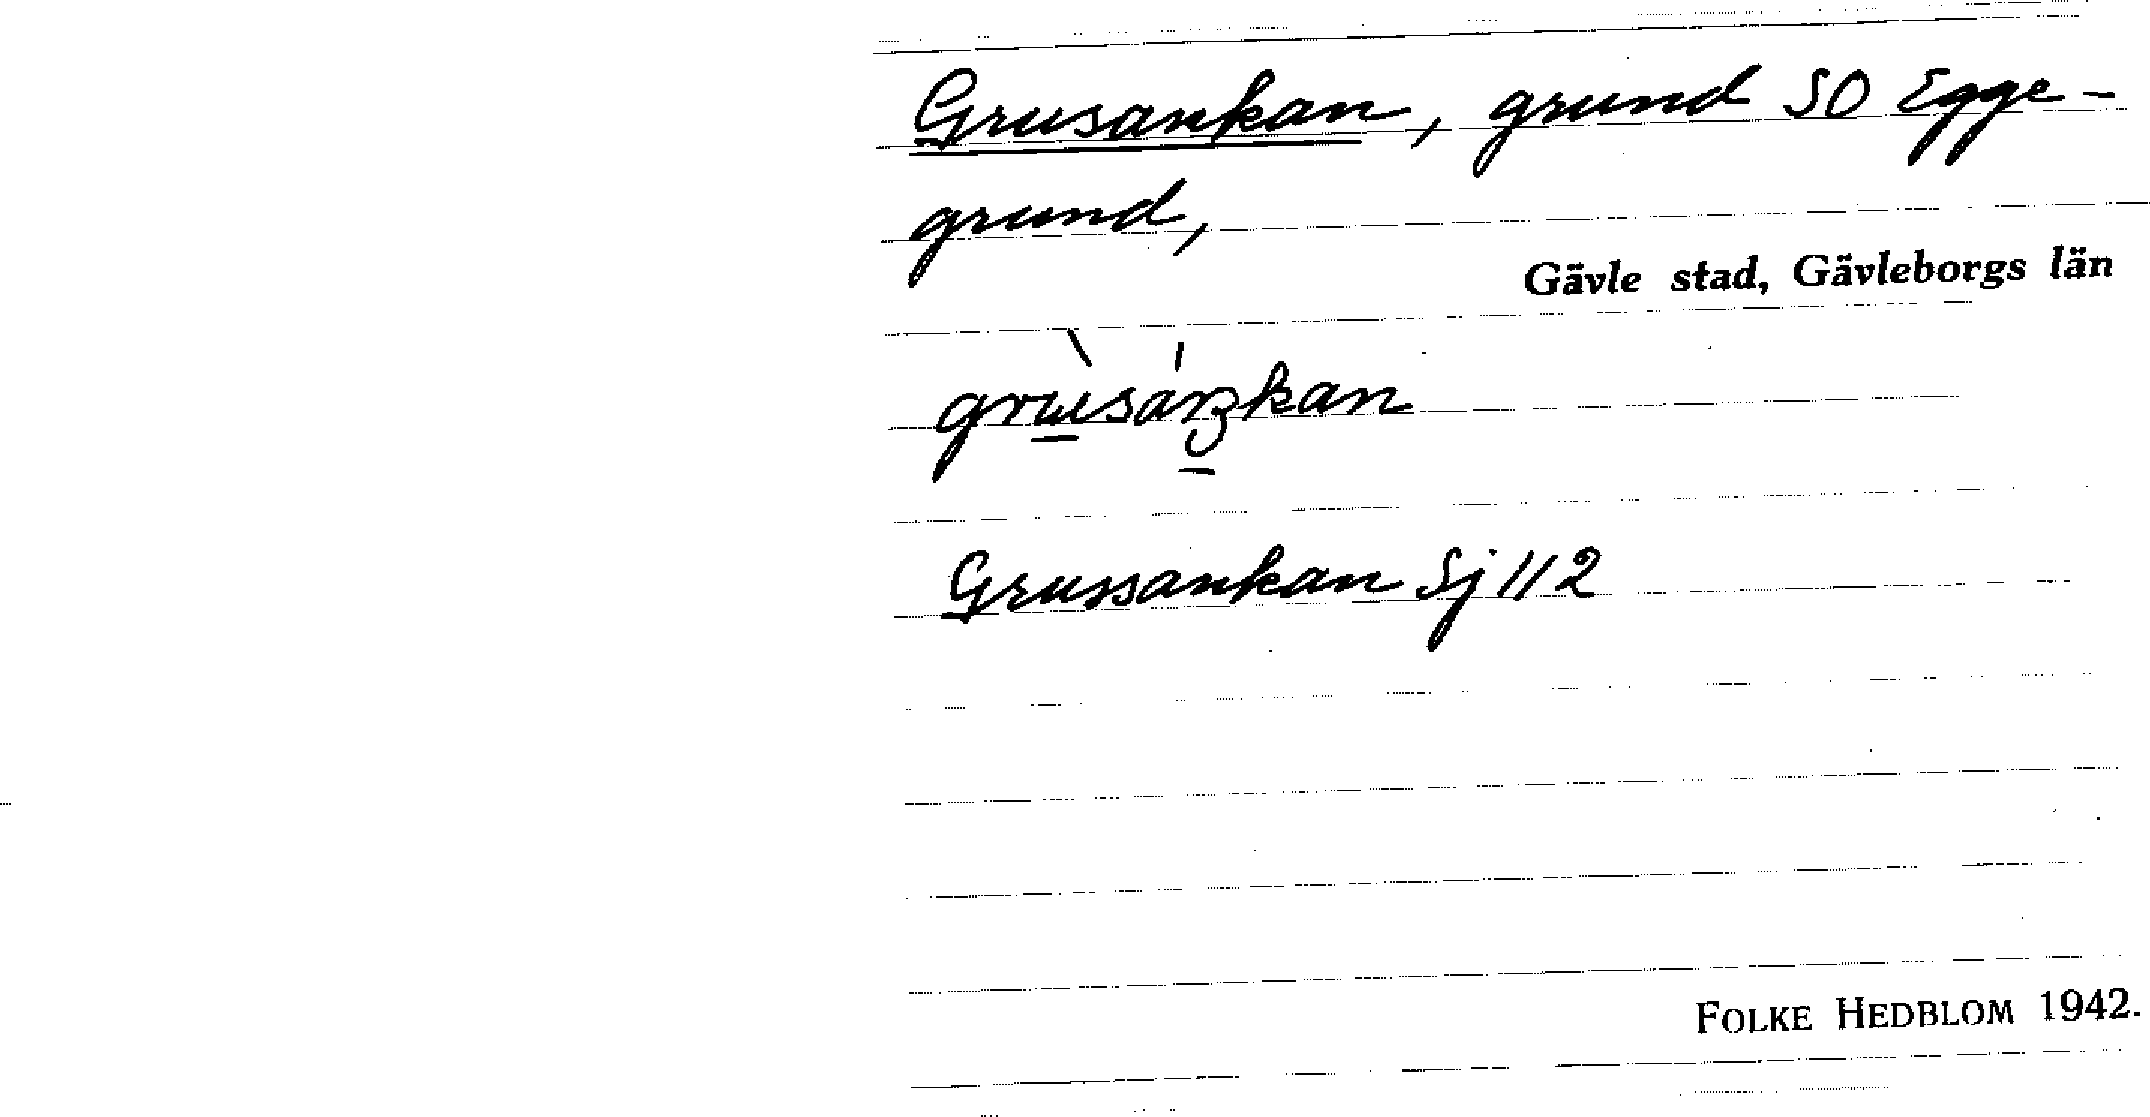 Grusankan, grund SO Egge-
grund,
Gävle stad, Gävleborgs län
Grussankan Sj 112
FOLKE HEDBLOM 1942.